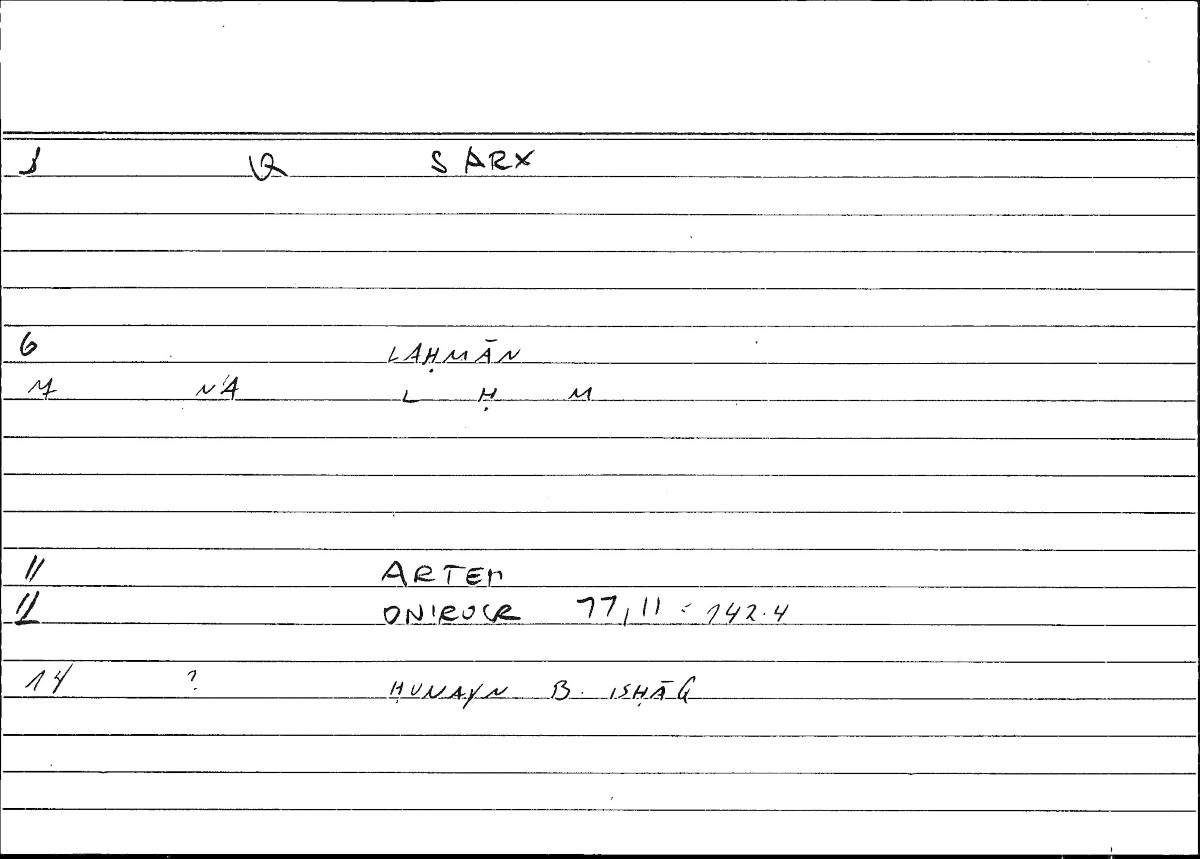 1 Q SARX
6 LAḤMĀN
7 NA L Ḥ M
11 ARTEM
12 ONIROCR 77,11 = 142.4
14 ? ḤUNAYN B. ISḤĀQ